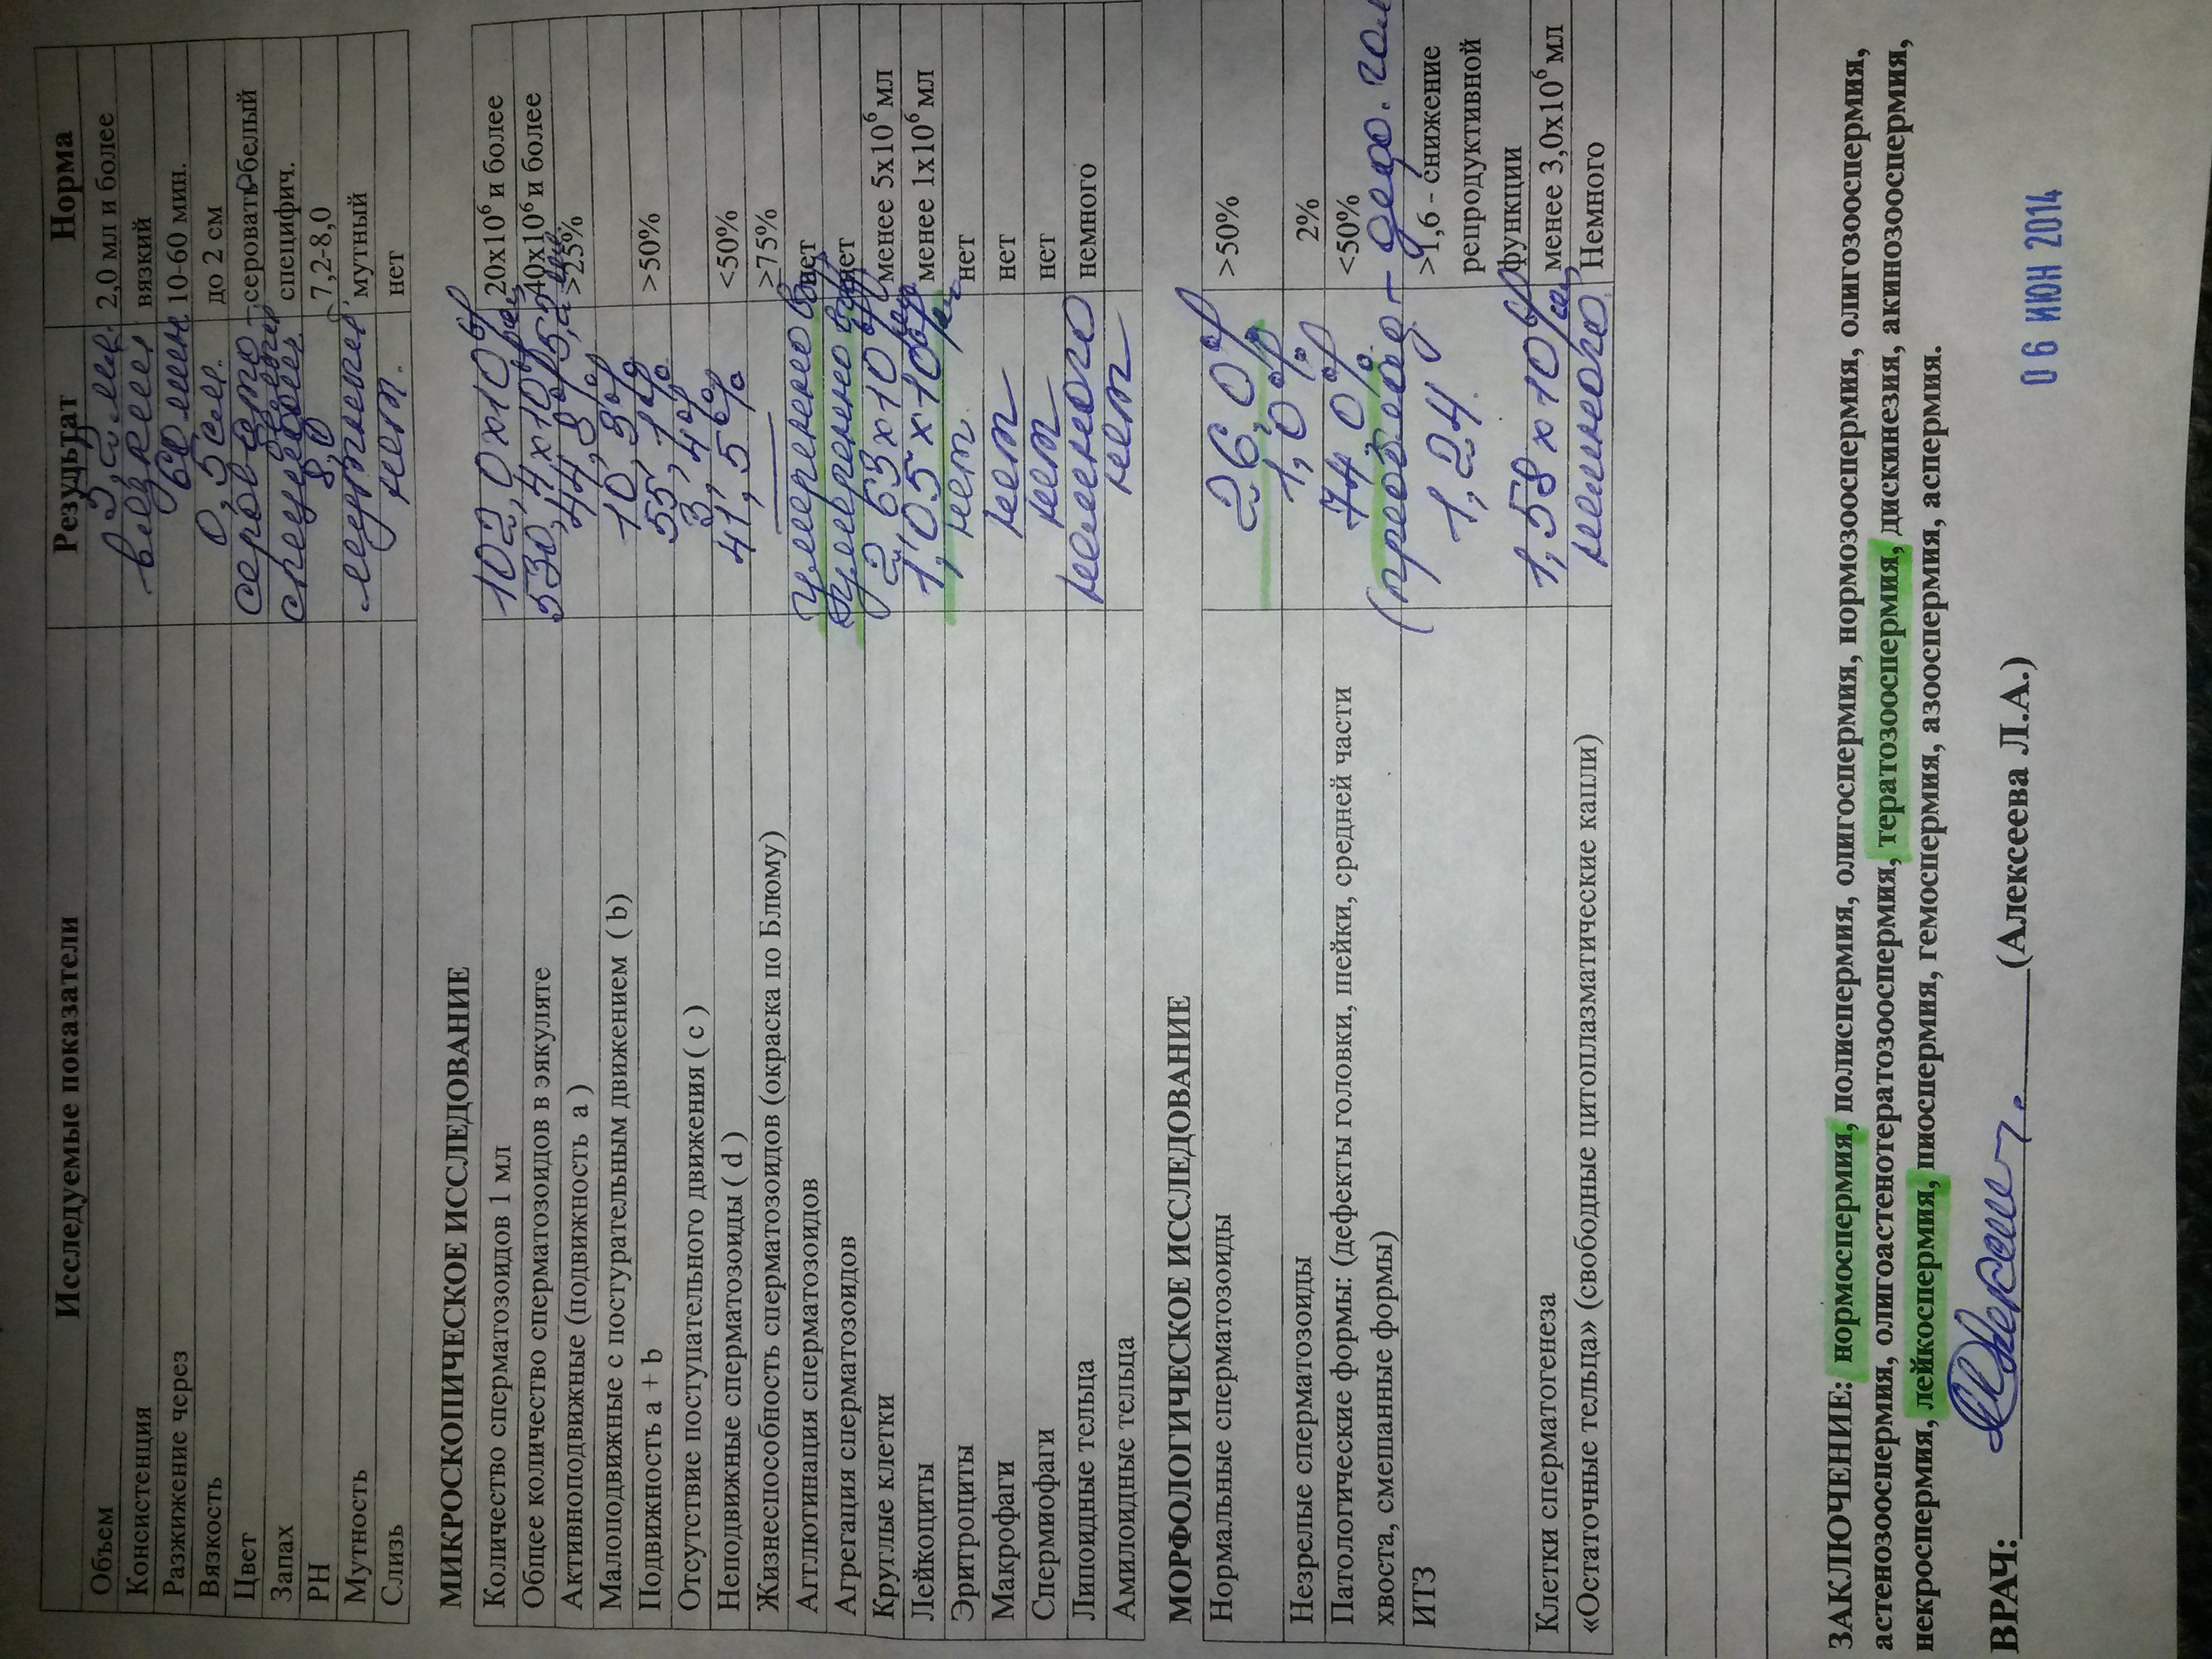 Исследуемые показатели Результат Норма
Объем 2,0 мл и более
Консистенция вязкий
Разжижение через 60 мин 10-60 мин.
Вязкость 0,5 см. до 2 см
Цвет серовато-белый
Запах специфич.
РН 8,0 7,2-8,0
Мутность мутный мутный
Слизь нет. нет
МИКРОСКОПИЧЕСКОЕ ИССЛЕДОВАНИЕ
Количество сперматозоидов 1 мл 102,0х10⁶/мл 20х10⁶ и более
Общее количество сперматозоидов в эякуляте 530,4х10⁶ 40х10⁶ и более
Активноподвижные (подвижность а ) 44,8% >25%
Малоподвижные с постуральным движением ( b) 10,3%
Подвижность а + b 55,1% >50%
Отсутствие поступательного движения ( с ) 3,4%
Неподвижные сперматозоиды ( d ) 41,5% <50%
Жизнеспособность сперматозоидов (окраска по Блюму) — >75%
Агглютинация сперматозоидов умеренно нет
Агрегация сперматозоидов умеренно нет
Круглые клетки 2,63х10⁶/мл менее 5х10⁶ мл
Лейкоциты 1,05х10⁶/мл менее 1х10⁶ мл
Эритроциты нет. нет
Макрофаги нет нет
Спермиофаги нет нет
Липоидные тельца немного немного
Амилоидные тельца нет
МОРФОЛОГИЧЕСКОЕ ИССЛЕДОВАНИЕ
Нормальные сперматозоиды 26,0% >50%
Незрелые сперматозоиды 1,0% 2%
Патологические формы: (дефекты головки, шейки, средней части 74,0% <50%
хвоста, смешанные формы) (преоблад –
ИТЗ 1,24 >1,6 - снижение
репродуктивной
функции
Клетки сперматогенеза 1,58х10⁶/мл менее 3,0х10⁶ мл
«Остаточные тельца» (свободные цитоплазматические капли) немного Немного
ЗАКЛЮЧЕНИЕ: нормоспермия, полиспермия, олигоспермия, нормозооспермия, олигозооспермия,
астенозооспермия, олигоастенотератозооспермия, тератозооспермия, дискинезия, акинозооспермия,
некроспермия, лейкоспермия, пиоспермия, гемоспермия, азооспермия, аспермия.
ВРАЧ: (Алексеева Л.А.) 06 ИЮН 2014